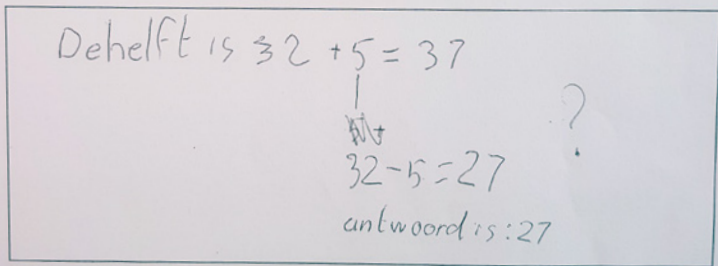 Dehelft is 32 + 5 = 37
?
32 - 5 = 27
antwoord is : 27